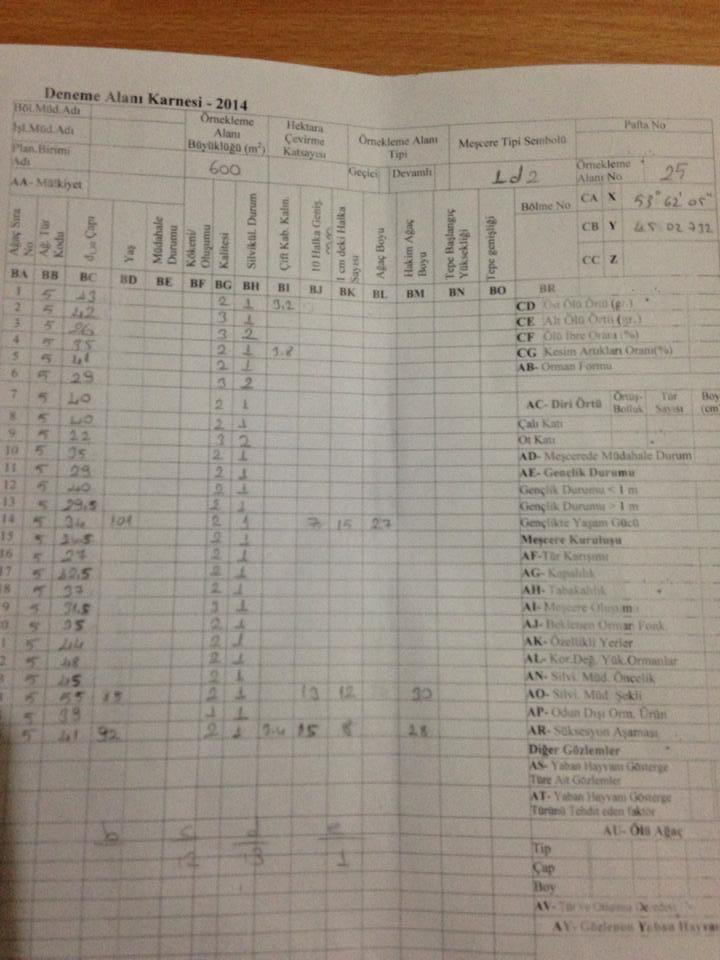 Deneme Alanı Karnesi - 2014
Böl.Müd.Adı
İşl.Müd.Adı
Plan.Birimi Adı
AA- Mülkiyet
Örnekleme Alanı Büyüklüğü (m²)
600
Hektara Çevirme Katsayısı
Örnekleme Alanı Tipi
Geçici Devamlı
Meşcere Tipi Sembolü
Ld2
Pafta No
Örnekleme Alanı No 25
Bölme No
CA X 53° 62' 05"
CB Y 45 02 732
CC Z
Ağaç Sıra No
Ağ. Tür Kodu
d1,30 Çapı
Yaş
Müdahale Durumu
Kökeni/ Oluşumu
Kalitesi
Silvikül. Durum
Çift Kab. Kalın.
10 Halka Geniş.
1 cm deki Halka Sayısı
Ağaç Boyu
Hakim Ağaç Boyu
Tepe Başlangıç Yüksekliği
Tepe genişliği
BA BB BC BD BE BF BG BH BI BJ BK BL BM BN BO BR
1 5 2 1 3.2
2 5 42 3 1
3 5 26 3 2
4 5 35 2 1 3.8
5 5 41 2 1
6 5 29 3 2
7 5 40 2 1
8 5 40 2 1
9 5 22 3 2
10 5 35 2 1
11 5 29 2 1
12 5 40 2 1
13 5 29,5 2 1
14 5 34 101 2 1 7 15 27
15 5 2 1
16 5 27 2 1
17 5 42,5 2 1
18 5 37 2 1
9 5 31,5 3 1
0 5 35 2 1
5 44 2 1
2 5 48 2 1
5 45 2 1
5 55 2 1 13 12 30
5 39 1 1
5 41 92 2 1 3.4 15 8 28
b c d e
12 13 1
CD Üst Ölü Örtü (gr.)
CE Alt Ölü Örtü (gr.)
CF Ölü İbre Oranı (%)
CG Kesim Artıkları Oranı(%)
AB- Orman Formu
AC- Diri Örtü
Örtüş- Bolluk
Tür Sayısı
Boy (cm
Çalı Katı
Ot Katı
AD- Meşcerede Müdahale Durum
AE- Gençlik Durumu
Gençlik Durumu < 1 m
Gençlik Durumu > 1 m
Gençlikte Yaşam Gücü
Meşcere Kuruluşu
AF-Tür Karışımı
AG- Kapalılık
AH- Tabakalılık
AI- Meşcere Oluşumu
AJ- Beklenen Orman Fonk.
AK- Özellikli Yerler
AL- Kor.Değ. Yük.Ormanlar
AN- Silvi. Müd. Öncelik
AO- Silvi. Müd. Şekli
AP- Odun Dışı Orm. Ürün
AR- Süksesyon Aşaması
Diğer Gözlemler
AS- Yaban Hayvanı Gösterge
Türe Ait Gözlemler
AT- Yaban Hayvanı Gösterge
Türünü Tehdit eden faktör
AU- Ölü Ağaç
Tip
Çap
Boy
AY- Gözlenen Yaban Hayvan